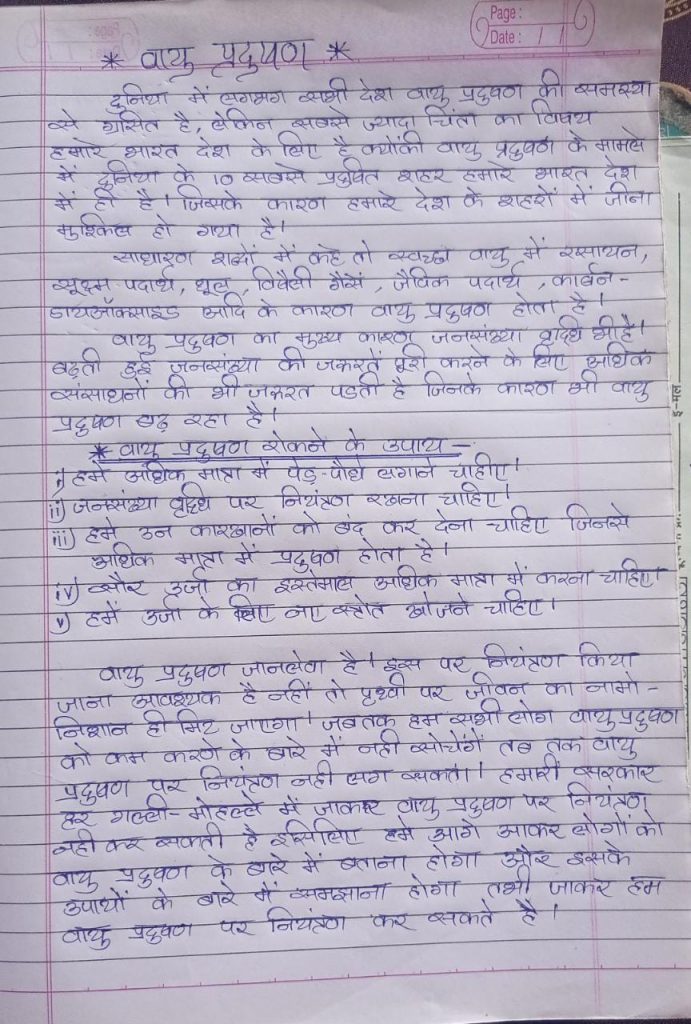 Page :
Date : / /
* वायु प्रदुषण *
दुनिया में लगभग सभी देश वायु प्रदुषण की समस्या
से ग्रसित है, लेकिन सबसे ज्यादा चिंता का विषय
हमारे भारत देश के लिए है क्योंकी वायु प्रदुषण के मामले
में दुनिया के 10 सबसे प्रदुषित शहर हमारे भारत देश
में ही है। जिसके कारण हमारे देश के शहरों में जीना
मुश्किल हो गया है।
साधारण शब्दों में कहे तो स्वच्छ वायु में रसायन,
सूक्ष्म पदार्थ, धूल, विषैली गैसें, जैविक पदार्थ, कार्बन-
डायऑक्साइड आदि के कारण वायु प्रदुषण होता है।
वायु प्रदुषण का मुख्य कारण जनसंख्या वृद्धि भी है।
बढ़ती हुई जनसंख्या की जरूरतें पूरी करने के लिए अधिक
संसाधनों की भी जरूरत पडती है जिनके कारण भी वायु
प्रदुषण बढ़ रहा है।
* वायु प्रदुषण रोकने के उपाय -
i) हमे अधिक मात्रा में पेड़-पौधे लगाने चाहीए।
ii) जनसंख्या वृद्धि पर नियंत्रण रखना चाहिए।
iii) हमे उन कारखानों को बंद कर देना चाहिए जिनसे
अधिक मात्रा में प्रदुषण होता है।
iv) सौर उर्जा का इस्तेमाल अधिक मात्रा में करना चाहिए।
v) हमें उर्जा के लिए नए स्त्रोत खोजने चाहिए।
वायु प्रदुषण जानलेवा है। इस पर नियंत्रण किया
जाना आवश्यक है नहीं तो पृथ्वी पर जीवन का नामो-
निशान ही मिट जाएगा। जबतक हम सभी लोग वायु प्रदुषण
को कम करणे के बारे में नही सोचेंगें तब तक वायु
प्रदुषण पर नियंत्रण नही लग सकता। हमारी सरकार
हर गल्ली-मोहल्ले में जाकर वायु प्रदुषण पर नियंत्रण
नही कर सकती है इसिलिए हमे आगे आकर लोगों को
वायु प्रदुषण के बारे में बताना होगा और इसके
उपायों के बारे में समझाना होगा तभी जाकर हम
वायु प्रदुषण पर नियंत्रण कर सकते है।
ई-मेल